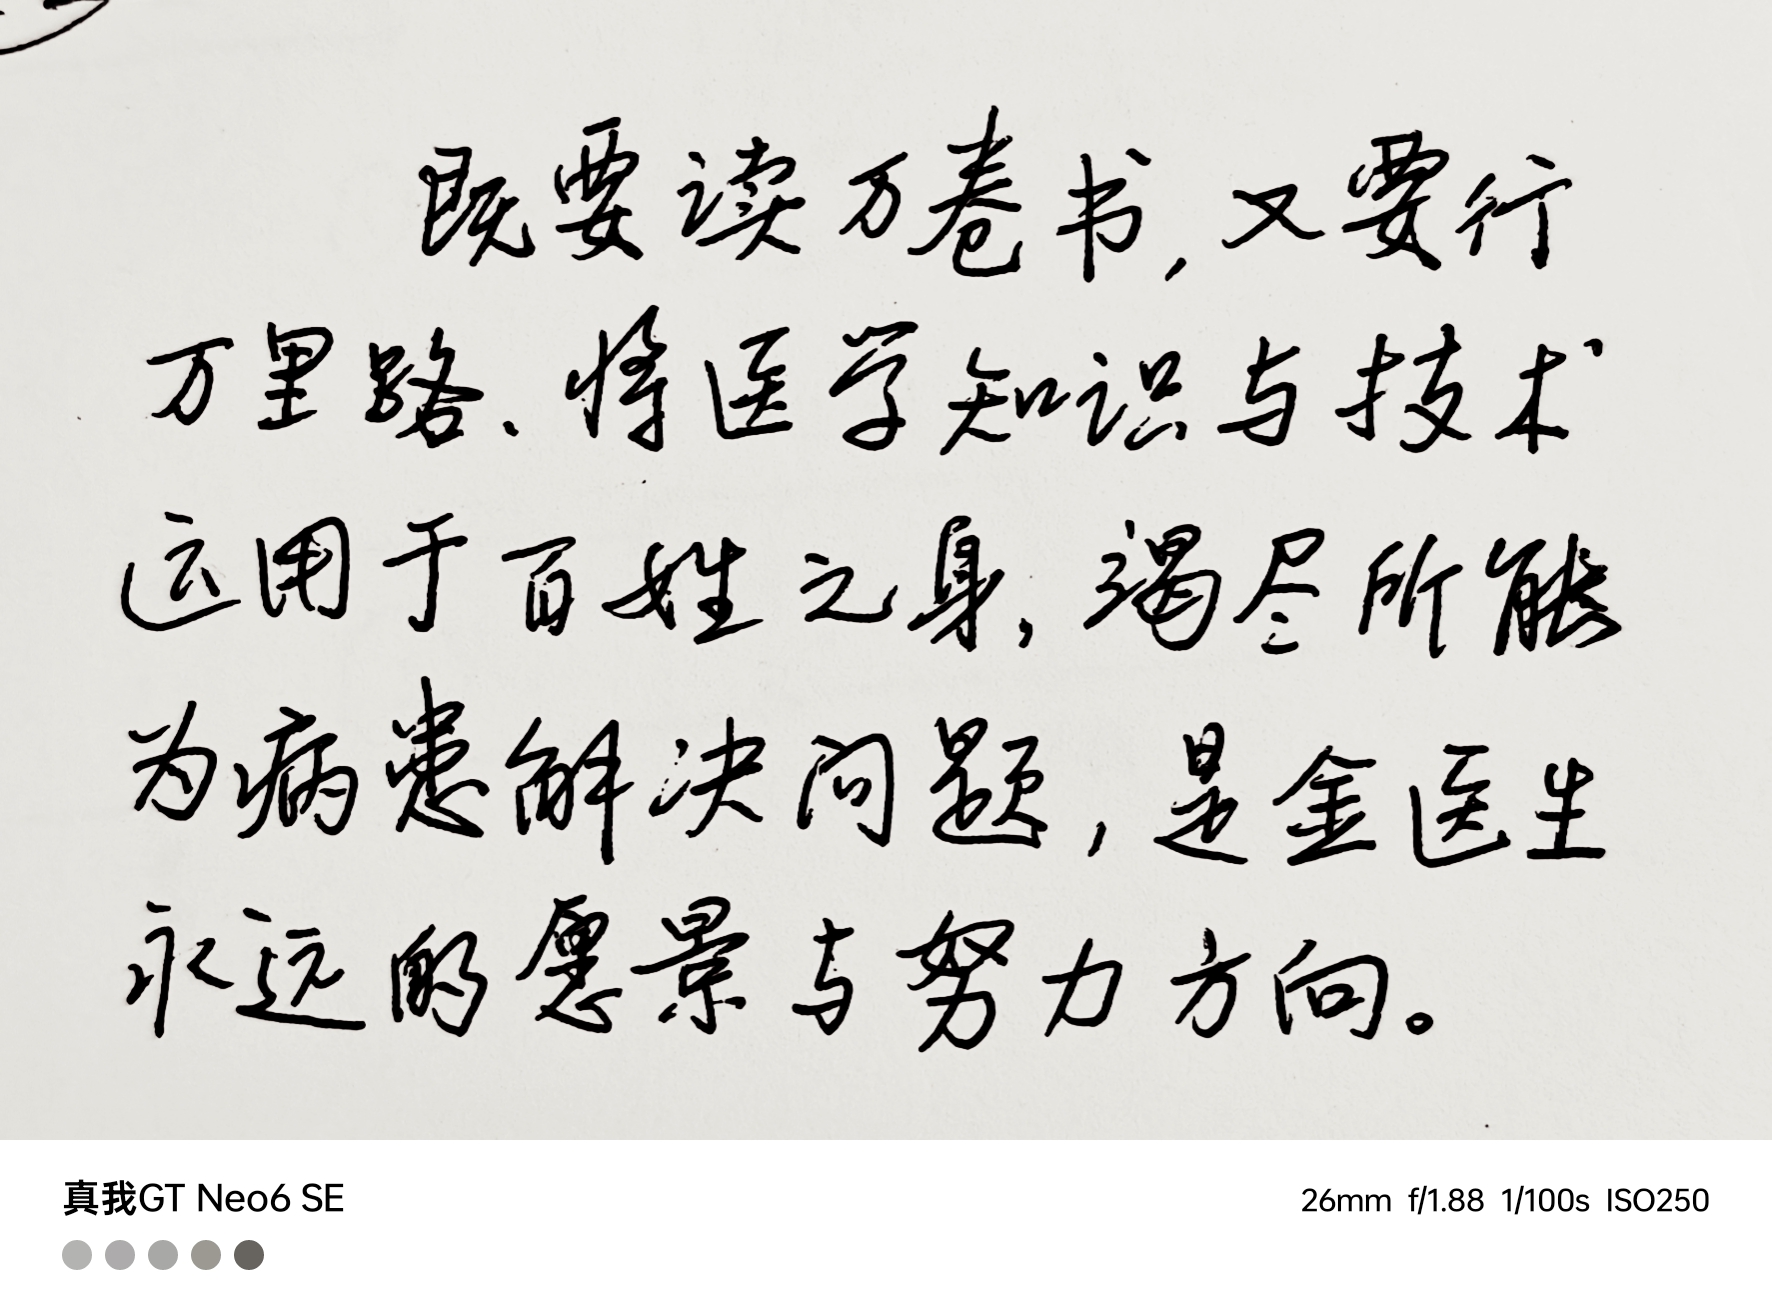 既要读万卷书,又要行
万里路、将医学知识与技术
运用于百姓之身,渴尽所能
为病患解决问题,是金医生
永远的愿景与努力方向。
真我GT Neo6 SE
26mm f/1.88 1/100s ISO250